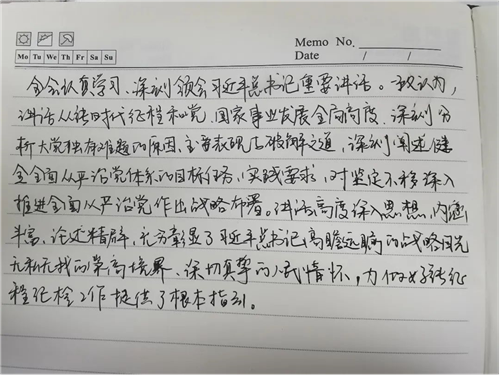 Memo No.
Mo Tu We Th Fr Sa Su
Date / /
全会认真学习、深刻领会习近平总书记重要讲话。一致认为，
讲话从新时代征程和党、国家事业发展全局高度，深刻分
析大党独有难题的原因、主要表现及破解之道，深刻阐述健
全全面从严治党体系的目标任务，实践要求，对坚定不移深入
推进全面从严治党作出战略部署。讲话高度深入思想，内涵
丰富、论述精辟，充分彰显了习近平总书记高瞻远瞩的战略目光
无私无我的崇高境界、深切真挚的人民情怀，为做好新征
程纪检工作提供了根本指引。